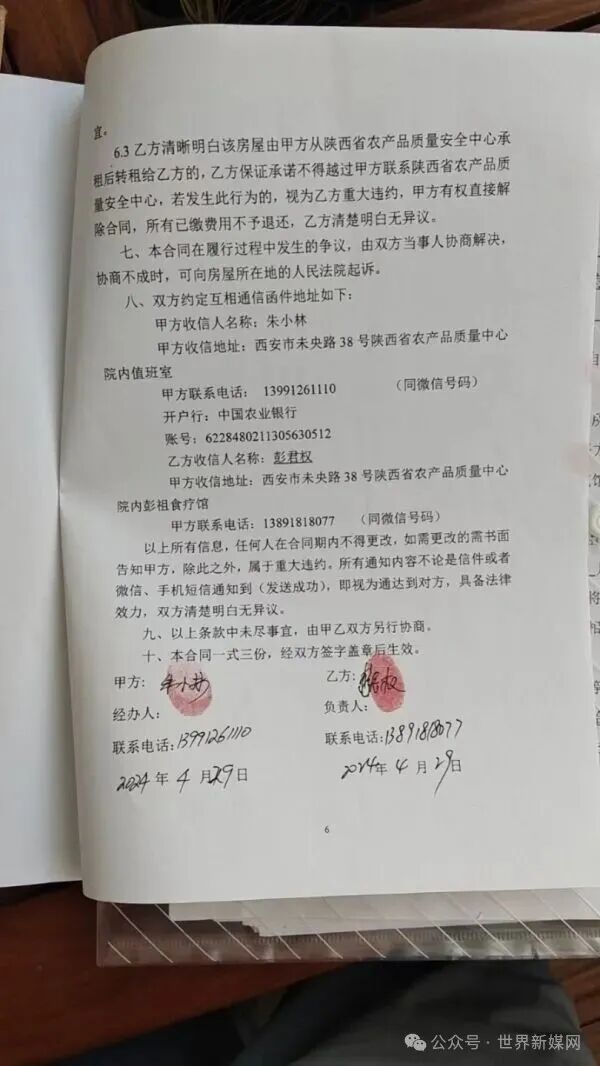 宜。
6.3 乙方清晰明白该房屋由甲方从陕西省农产品质量安全中心承
租后转租给乙方的，乙方保证承诺不得越过甲方联系陕西省农产品质
量安全中心，若发生此行为的，视为乙方重大违约，甲方有权直接解
除合同，所有已缴费用不予退还，乙方清楚明白无异议。
七、本合同在履行过程中发生的争议，由双方当事人协商解决，
协商不成时，可向房屋所在地的人民法院起诉。
八、双方约定互相通信函件地址如下：
甲方收信人名称：朱小林
甲方收信地址：西安市未央路 38 号陕西省农产品质量中心
院内值班室
甲方联系电话： 13991261110 （同微信号码）
开户行：中国农业银行
账号：6228480211305630512
乙方收信人名称：彭君权
甲方收信地址：西安市未央路 38 号陕西省农产品质量中心
院内彭祖食疗馆
甲方联系电话：13891818077 （同微信号码）
以上所有信息，任何人在合同期内不得更改，如需更改的需书面
告知甲方，除此之外，属于重大违约。所有通知内容不论是信件或者
微信、手机短信通知到（发送成功），即视为通达到对方，具备法律
效力，双方清楚明白无异议。
九、以上条款中未尽事宜，由甲乙双方另行协商。
十、本合同一式三份，经双方签字盖章后生效。
甲方：朱小林 乙方：
经办人： 负责人：
联系电话：13991261110 联系电话：13891818077
2024 年 4 月 29 日 2024 年 4 月 29 日
6
公众号·世界新媒网